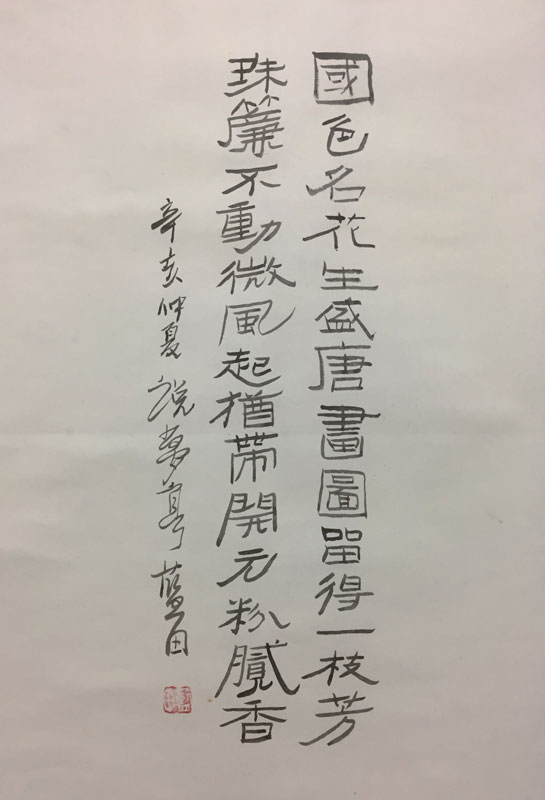 國色名花生盛唐畫圖留得一枝芳
珠簾不動微風起猶帶開元粉膩香
辛亥仲夏說亭藍田